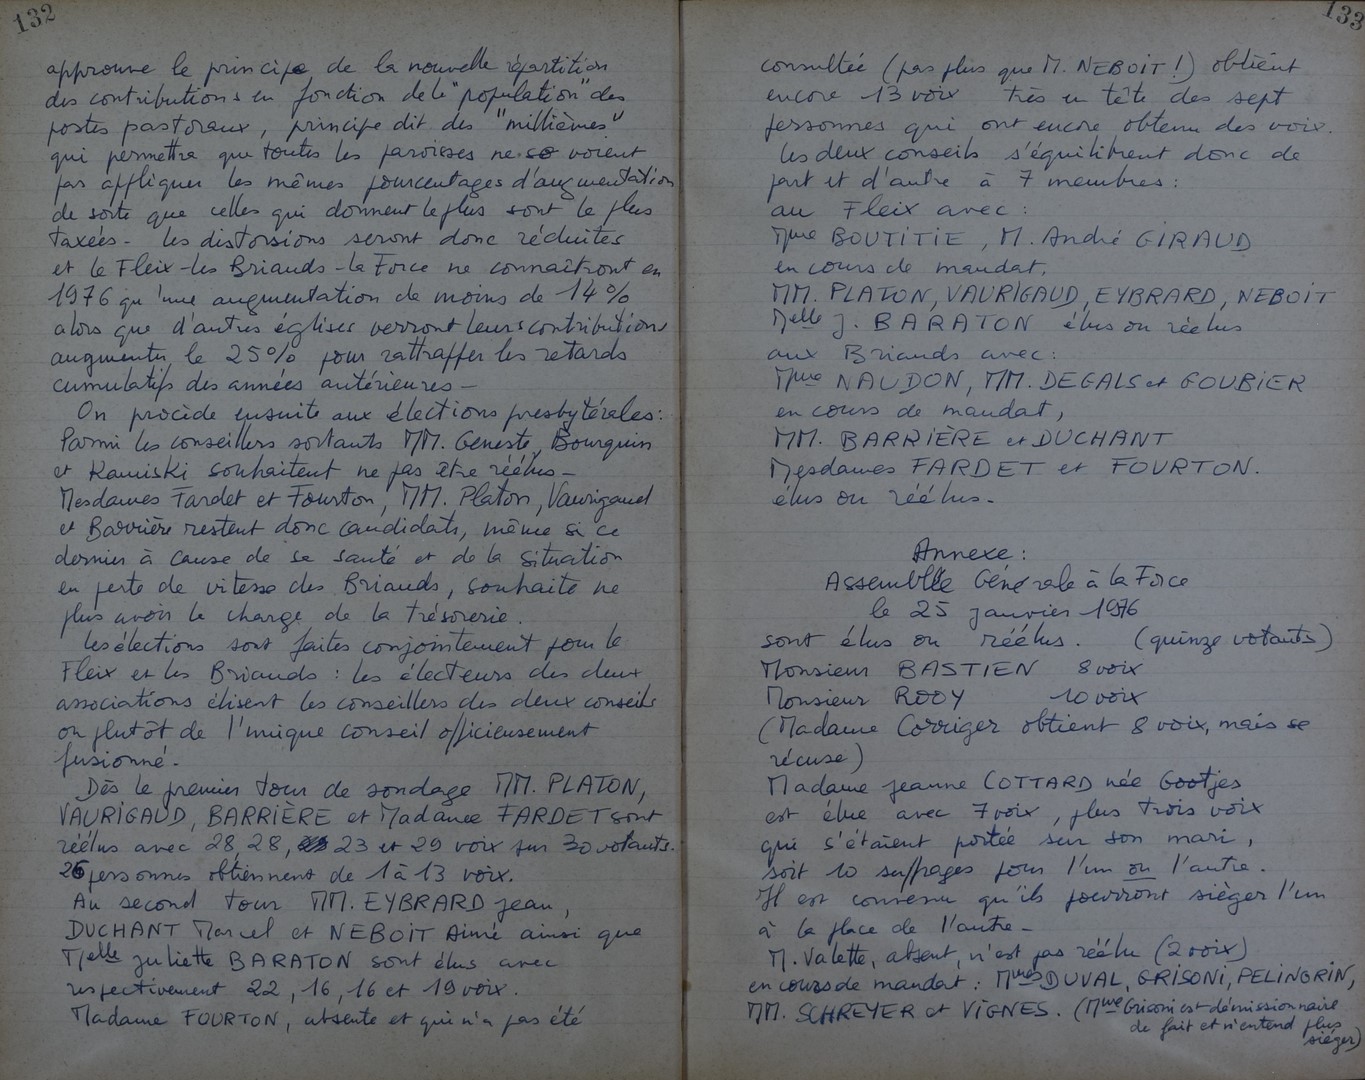 132
approuve le principe de la nouvelle répartition
des contributions en fonction de la "population" des
postes pastoraux, principe dit des "millièmes"
qui permettra que toutes les paroisses ne se voient
pas appliquer les mêmes pourcentages d'augmentation
de sorte que celles qui donnent le plus sont le plus
taxées - les distorsions seront donc réduites
et le Fleix - les Briands - la Force ne connaîtront en
1976 qu'une augmentation de moins de 14%
alors que d'autres églises verront leurs contributions
augmenter le 25% pour rattrapper les retards
cumulatifs des années antérieures -
On procède ensuite aux élections presbytérales :
Parmi les conseillers sortants MM. Geneste, Bourguin
et Kaminski souhaitent ne pas être réélus -
Mesdames Fardet et Fourton, MM. Platon, Vaurigaud
et Barrière restent donc candidats, même si ce
dernier à cause de sa santé et de la situation
en perte de vitesse des Briands, souhaite ne
plus avoir la charge de la trésorerie.
Les élections sont faites conjointement pour le
Fleix et les Briands : les électeurs des deux
associations élisent les conseillers des deux conseils
ou plutôt de l'unique conseil officieusement
fusionné.
Dès le premier tour de sondage MM. PLATON,
VAURIGAUD, BARRIÈRE et Madame FARDET sont
réélus avec 28, 28, 23 et 29 voix sur 30 votants.
26 personnes obtiennent de 1 à 13 voix.
Au second tour MM. EYBRARD Jean,
DUCHANT Marcel et NEBOIT Aimé ainsi que
Melle Juliette BARATON sont élus avec
respectivement 22, 16, 16 et 19 voix.
Madame FOURTON, absente et qui n'a pas été
133
consultée (pas plus que M. NEBOIT !) obtient
encore 13 voix très en tête des sept
personnes qui ont encore obtenu des voix.
Les deux conseils s'équilibrent donc de
part et d'autre à 7 membres :
au Fleix avec :
Mme BOUTITIE, M. André GIRAUD
en cours de mandat,
MM. PLATON, VAURIGAUD, EYBRARD, NEBOIT
Melle J. BARATON élus ou réélus
aux Briands avec :
Mme NAUDON, MM. DEGALS et GOUBIER
en cours de mandat,
MM. BARRIÈRE et DUCHANT
Mesdames FARDET et FOURTON.
élus ou réélus -
Annexe :
Assemblée Générale à la Force
le 25 janvier 1976
sont élus ou réélus. (quinze votants)
Monsieur BASTIEN 8 voix
Monsieur ROOY 10 voix
(Madame Corriger obtient 8 voix, mais se
récuse)
Madame Jeanne COTTARD née Gootjes
est élue avec 7 voix, plus trois voix
qui s'étaient portée sur son mari,
soit 10 suffrages pour l'un ou l'autre.
Il est convenu qu'ils pourront siéger l'un
à la place de l'autre -
M. Valette, absent, n'est pas réélu (2 voix)
en cours de mandat : Mmes DUVAL, GRISONI, PELINGRIN,
MM. SCHREYER et VIGNES. (Mme Grisoni est démissionnaire
de fait et n'entend plus
siéger)